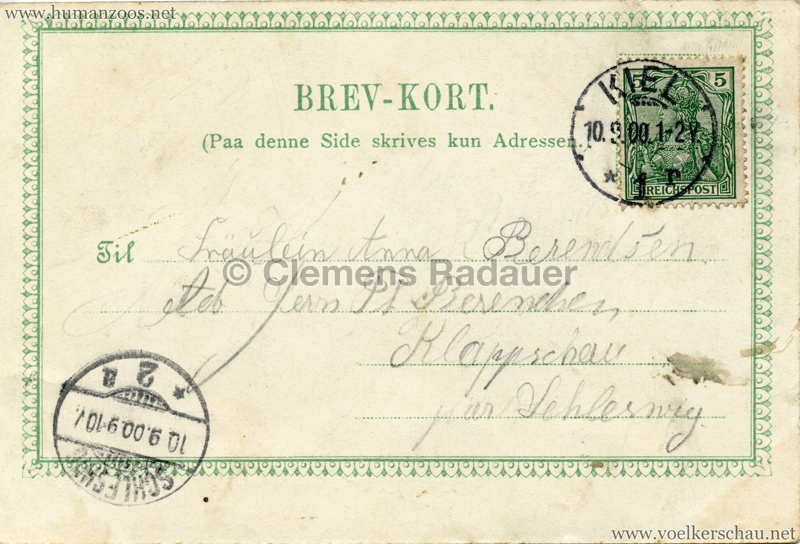 www.humanzoos.net
BREV-KORT.
(Paa denne Side skrives kun Adressen.)
5 5
REICHSPOST
KIEL
10.9.00.1-2V.
* 1 r
Til Fräulein Anna Berendsen
© Clemens Radauer
Adr Herrn Berendsen
Klappschau
per Schleswig
* 2 a
10.9.00.9-10V.
SCHLESWIG
www.voelkerschau.net